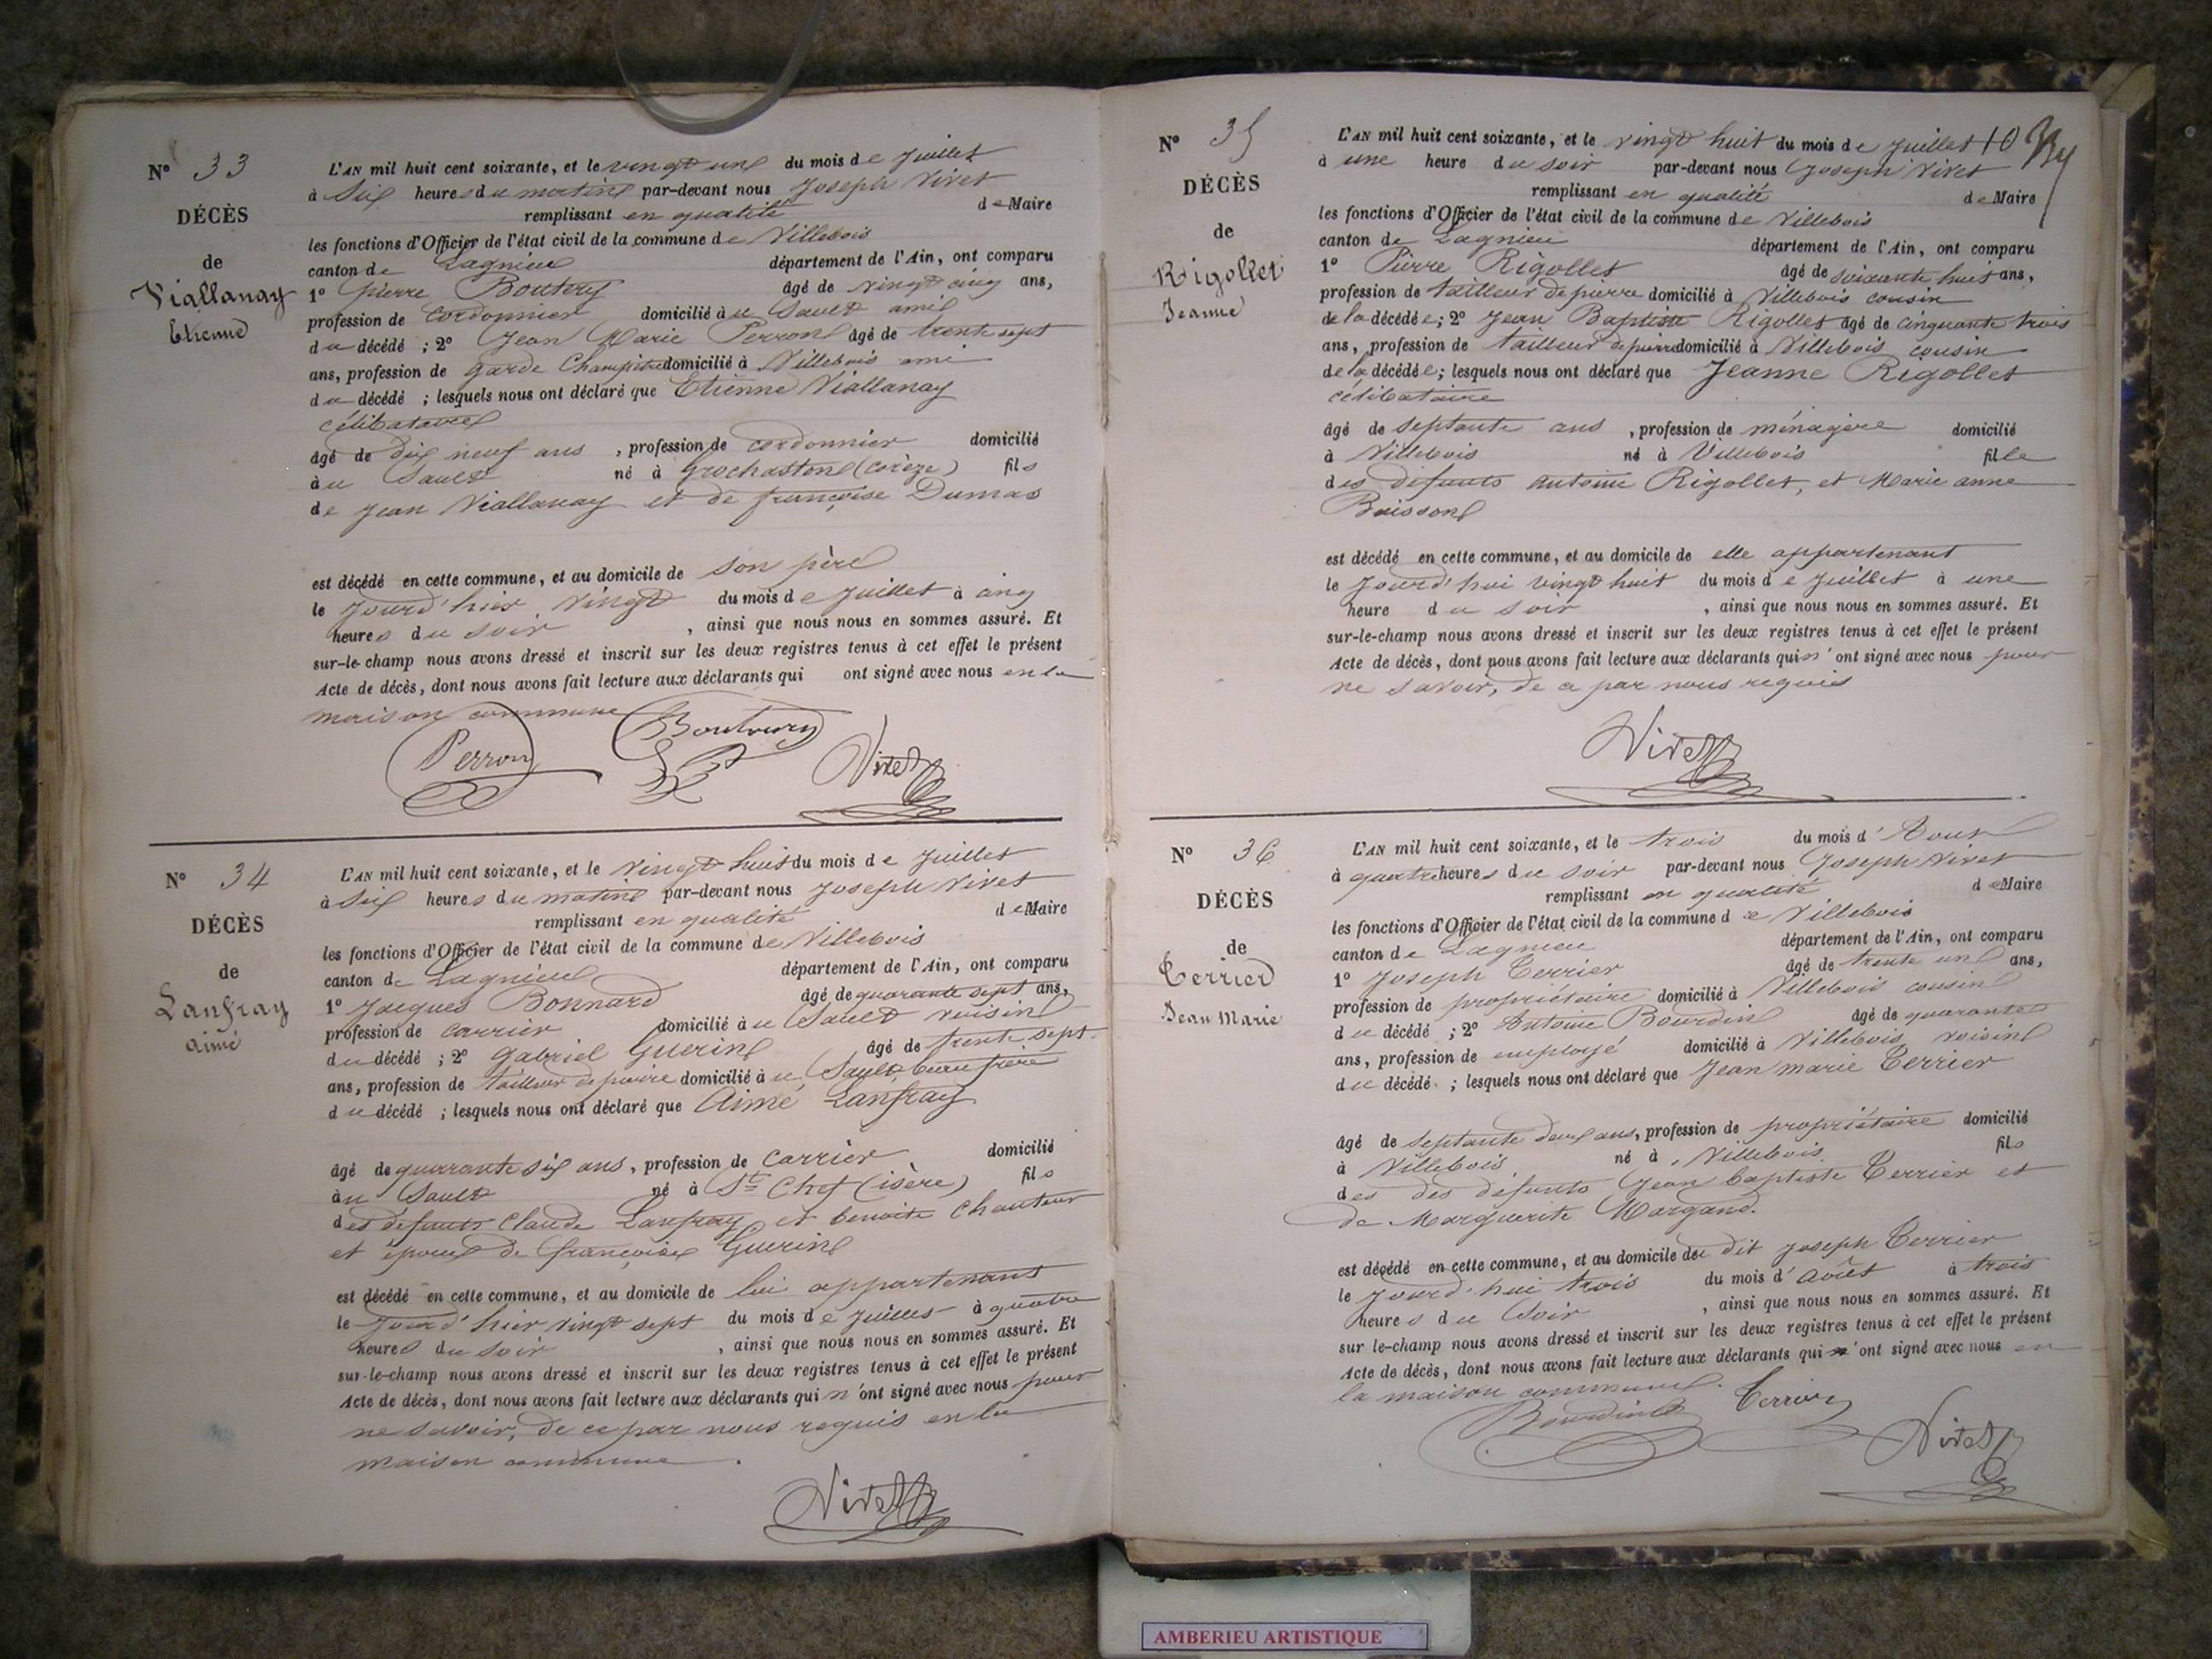 N° 33
DÉCÈS
de
Viallanay
Etienne
L'AN mil huit cent soixante, et le vingt un du mois de Juillet
à Six heures du matin par-devant nous Joseph Vivet
remplissant en qualité de Maire
les fonctions d'Officier de l'état civil de la commune de Villebois
canton de Lagnieu département de l'Ain, ont comparu
1° Pierre Boutery âgé de vingt cinq ans,
profession de Cordonnier domicilié au Sault ami
du décédé ; 2° Jean Marie Perron âgé de trente sept
ans, profession de garde Champêtre domicilié à Villebois ami
du décédé ; lesquels nous ont déclaré que Etienne Viallanay
célibataire
âgé de dix neuf ans , profession de cordonnier domicilié
au Sault né à (Corèze) fils
de Jean Viallanay et de françoise Dumas
est décédé en cette commune, et au domicile de son père
le Jourd'hier vingt du mois de Juillet à cinq
heures du soir , ainsi que nous nous en sommes assuré. Et
sur-le-champ nous avons dressé et inscrit sur les deux registres tenus à cet effet le présent
Acte de décès, dont nous avons fait lecture aux déclarants qui ont signé avec nous en la
maison commune
Perron Vivet
N° 34
DÉCÈS
de
Lanfray
aimé
L'AN mil huit cent soixante, et le vingt huit du mois de Juillet
à Six heures du matin par-devant nous Joseph Vivet
remplissant en qualité de Maire
les fonctions d'Officier de l'état civil de la commune de Villebois
canton de Lagnieu département de l'Ain, ont comparu
1° Jacques Bonnard âgé de quarante sept ans,
profession de carrier domicilié au Sault voisin
du décédé ; 2° Gabriel Guerin âgé de trente sept
ans, profession de tailleur de pierre domicilié au Sault beau frère
du décédé ; lesquels nous ont déclaré que Aimé Lanfray
âgé de quarante six ans , profession de Carrier domicilié
au Sault né à St Chef (isère) fils
des defunts Claude Lanfray et benoite Chanteur
et époux de françoise Guerin
est décédé en cette commune, et au domicile de lui appartenant
le Jourd'hier vingt sept du mois de Juillet à quatre
heures du soir , ainsi que nous nous en sommes assuré. Et
sur-le-champ nous avons dressé et inscrit sur les deux registres tenus à cet effet le présent
Acte de décès, dont nous avons fait lecture aux déclarants qui n'ont signé avec nous pour
ne savoir, de ce par nous requis en la
maison commune.
Vivet
N° 35
DÉCÈS
de
Rigollet
Jeanne
L'AN mil huit cent soixante, et le vingt huit du mois de Juillet 10
à une heure du soir par-devant nous Joseph Vivet
remplissant en qualité de Maire
les fonctions d'Officier de l'état civil de la commune de Villebois
canton de Lagnieu département de l'Ain, ont comparu
1° Pierre Rigollet âgé de soixante huit ans,
profession de tailleur de pierre domicilié à Villebois cousin
de la décédée; 2° Jean Baptiste Rigollet âgé de cinquante trois
ans, profession de tailleur de pierre domicilié à Villebois cousin
de la décédée; lesquels nous ont déclaré que Jeanne Rigollet
célibataire
âgé de septante ans , profession de ménagère domicilié
à Villebois né à Villebois fille
des défunts antoine Rigollet, et Marie anne
Buisson
est décédé en cette commune, et au domicile de elle appartenant
le Jourd'hui vingt huit du mois de Juillet à une
heure du soir , ainsi que nous nous en sommes assuré. Et
sur-le-champ nous avons dressé et inscrit sur les deux registres tenus à cet effet le présent
Acte de décès, dont nous avons fait lecture aux déclarants qui n'ont signé avec nous pour
ne savoir, de ce par nous requis
Vivet
N° 36
DÉCÈS
de
Terrier
Jean Marie
L'AN mil huit cent soixante, et le trois du mois d'Aout
à quatre heures du soir par-devant nous Joseph Vivet
remplissant en qualité de Maire
les fonctions d'Officier de l'état civil de la commune de Villebois
canton de Lagnieu département de l'Ain, ont comparu
1° Joseph Terrier âgé de trente un ans,
profession de propriétaire domicilié à Villebois cousin
du décédé ; 2° Antoine Bourdin âgé de quarante
ans, profession de employé domicilié à Villebois voisin
du décédé ; lesquels nous ont déclaré que Jean marie Terrier
âgé de septante deux ans, profession de propriétaire domicilié
à Villebois né à Villebois fils
des des défunts Jean baptiste Terrier et
de Marguerite Margand.
est décédé en cette commune, et au domicile du dit Joseph Terrier
le Jourd'hui trois du mois d'août à trois
heures du soir , ainsi que nous nous en sommes assuré. Et
sur le-champ nous avons dressé et inscrit sur les deux registres tenus à cet effet le présent
Acte de décès, dont nous avons fait lecture aux déclarants qui ont signé avec nous en
la maison commune.
Bourdin Terrier Vivet
AMBERIEU ARTISTIQUE